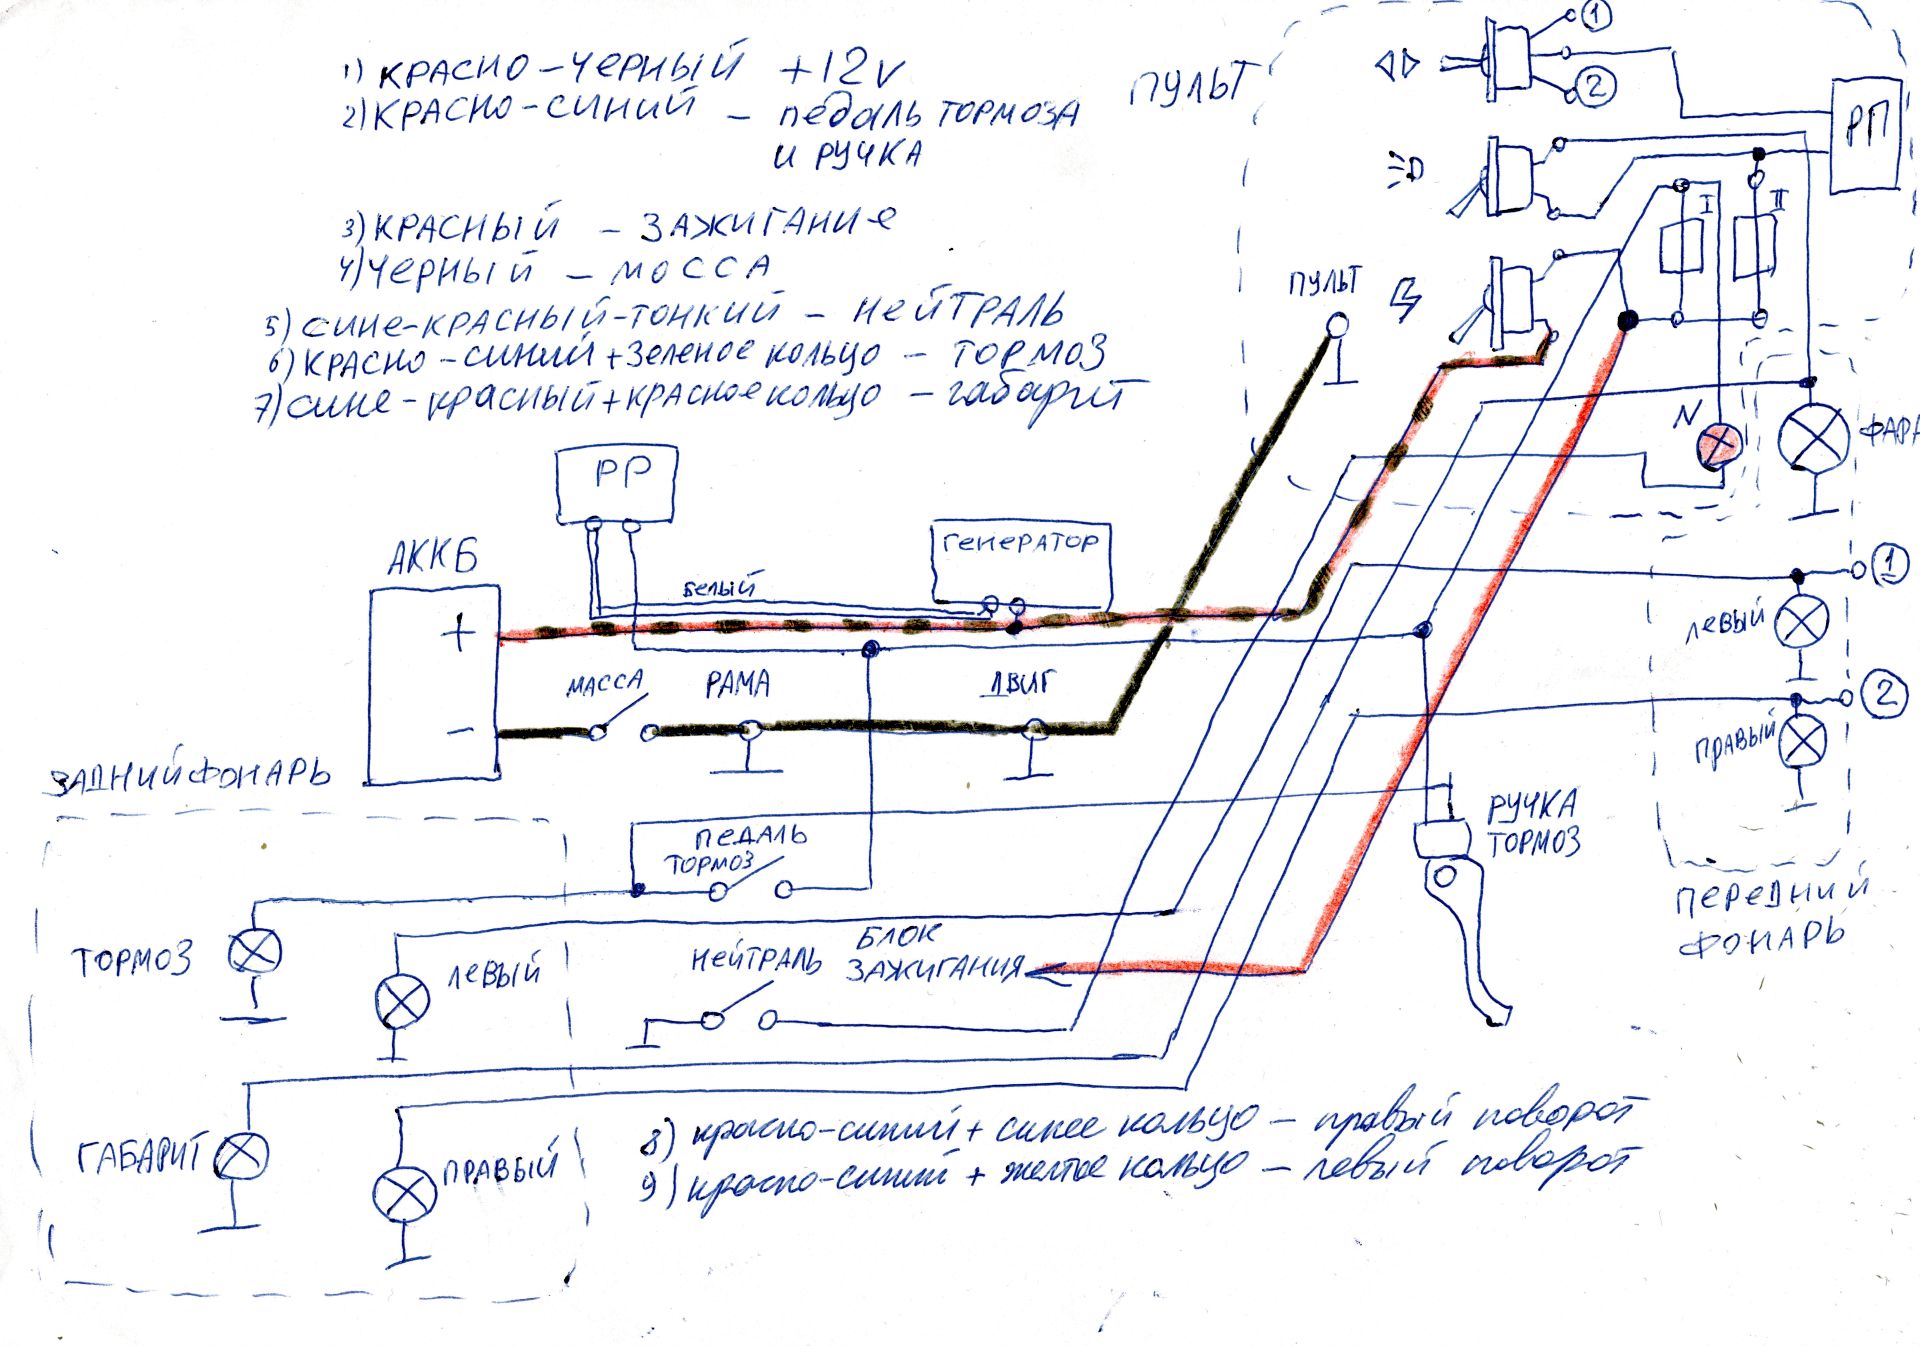 1) КРАСНО-ЧЕРНЫЙ +12V
2) КРАСНО-СИНИЙ - ПЕДАЛЬ ТОРМОЗА
И РУЧКА
3) КРАСНЫЙ - ЗАЖИГАНИЕ
4) ЧЕРНЫЙ - МОССА
5) СИНЕ-КРАСНЫЙ-ТОНКИЙ - НЕЙТРАЛЬ
6) КРАСНО-СИНИЙ+ЗЕЛЕНОЕ КОЛЬЦО - ТОРМОЗ
7) СИНЕ-КРАСНЫЙ+КРАСНОЕ КОЛЬЦО - габарит
ПУЛЬТ
1
2
РП
I
II
ПУЛЬТ
N
ФАРА
РР
АККБ
ГЕНЕРАТОР
БЕЛЫЙ
+
1
ЛЕВЫЙ
МАССА
РАМА
ДВИГ
-
2
ПРАВЫЙ
ЗАДНИЙ ФОНАРЬ
ПЕДАЛЬ
ТОРМОЗ
РУЧКА
ТОРМОЗ
ПЕРЕДНИЙ
ФОНАРЬ
ТОРМОЗ
ЛЕВЫЙ
НЕЙТРАЛЬ
БЛОК
ЗАЖИГАНИЯ
ГАБАРИТ
ПРАВЫЙ
8) красно-синий + синее кольцо - правый поворот
9) красно-синий + желтое кольцо - левый поворот